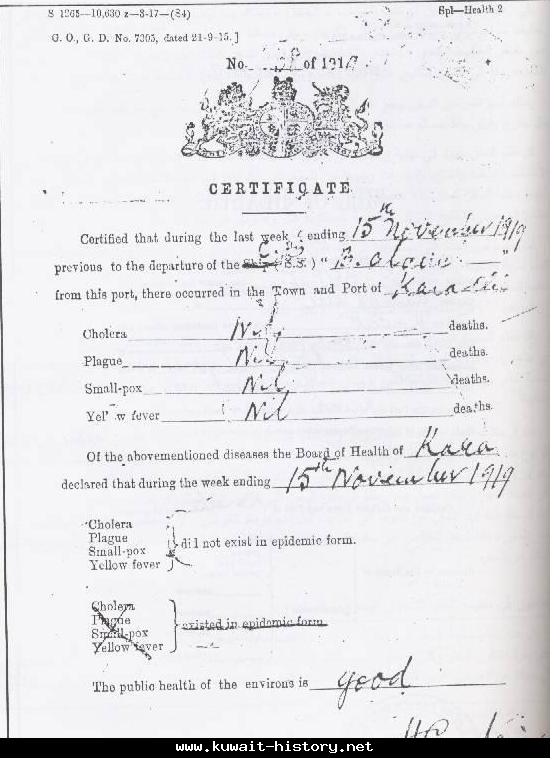 S 1265—10,630 z—3-17—(84)
Spl—Health 2
G. O., G. D. No. 7305, dated 21-9-15.]
No. of 191
CERTIFICATE.
Certified that during the last week ending 15th November 1919
previous to the departure of the Ship (S.S.) " "
from this port, there occurred in the Town and Port of
Cholera Nil deaths.
Plague Nil deaths.
Small-pox Nil deaths.
Yel' w fever Nil deaths.
Of the abovementioned diseases the Board of Health of Kara
declared that during the week ending 15th November 1919
Cholera
Plague
Small-pox
Yellow fever
di l not exist in epidemic form.
Cholera
Plague
Small-pox
Yellow fever
existed in epidemic form
The public health of the environs is good
www.kuwait-history.net